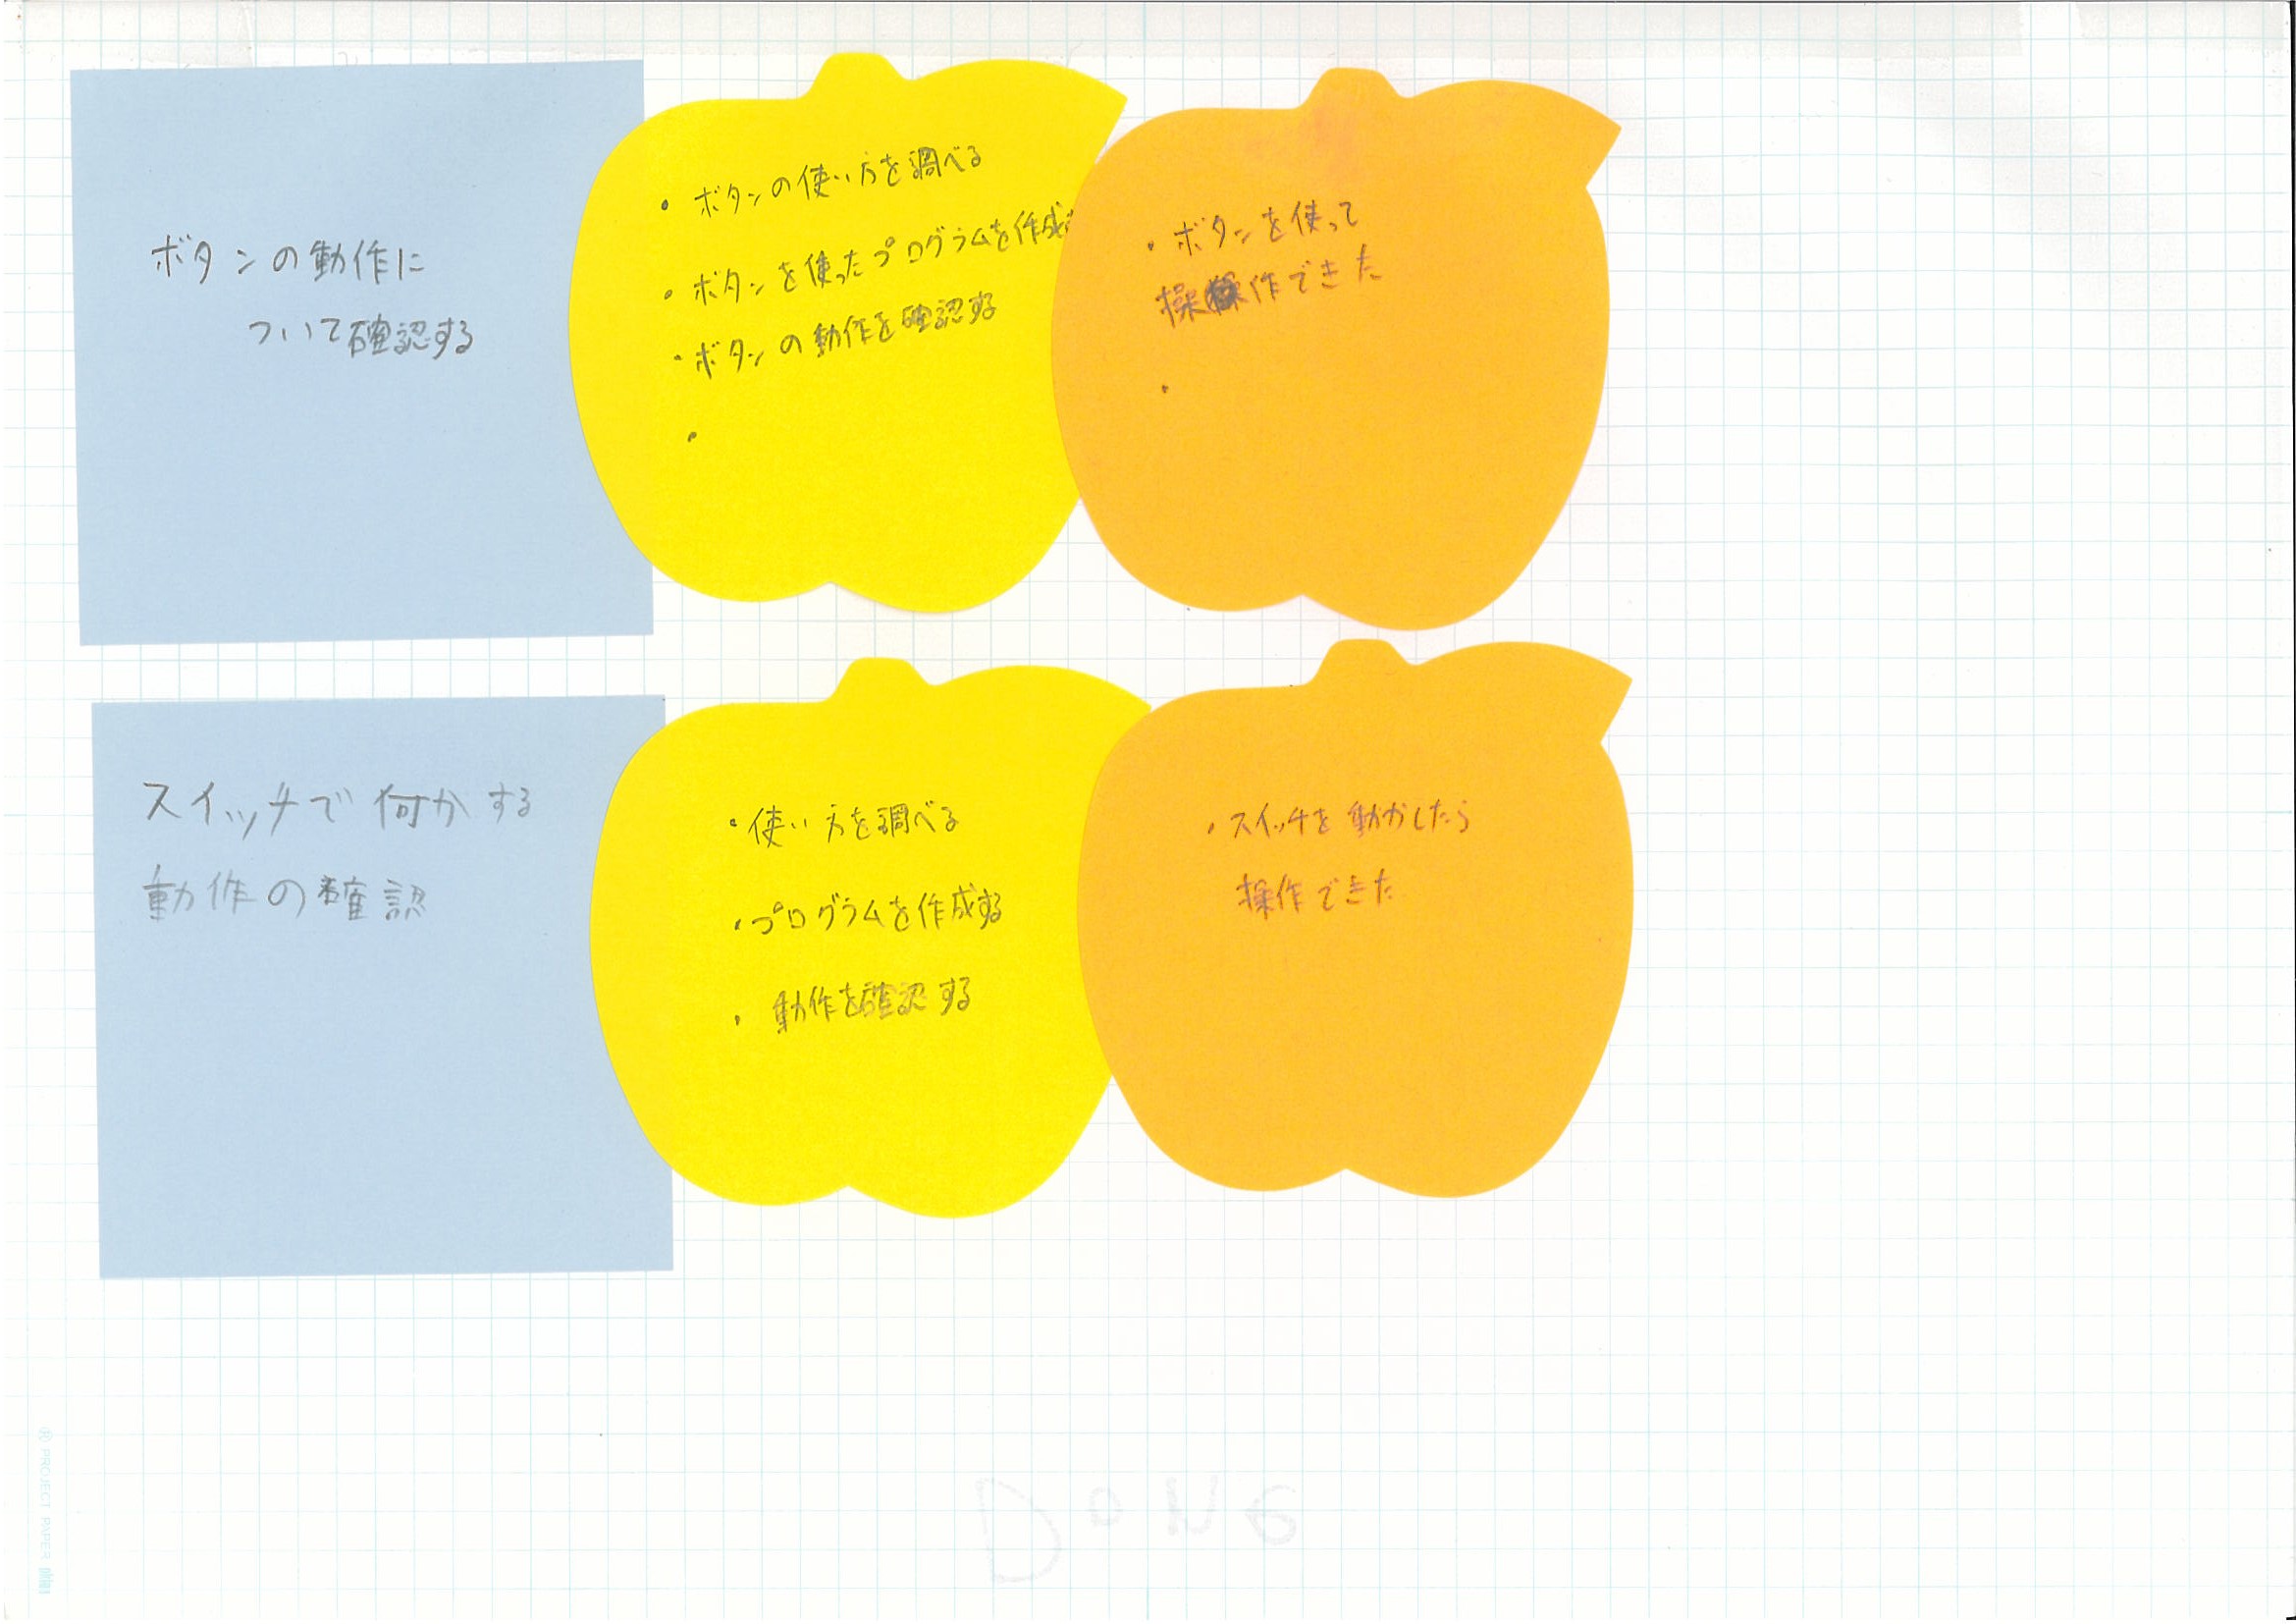 ボタンの動作に
ついて確認する
・ボタンの使い方を調べる
・ボタンを使ったプログラムを作成
・ボタンの動作を確認する
・
・ボタンを使って
操作できた
・
スイッチで何かする
動作の確認
・使い方を調べる
・プログラムを作成する
・動作を確認する
・スイッチを動かしたら
操作できた
DONE
® PROJECT PAPER